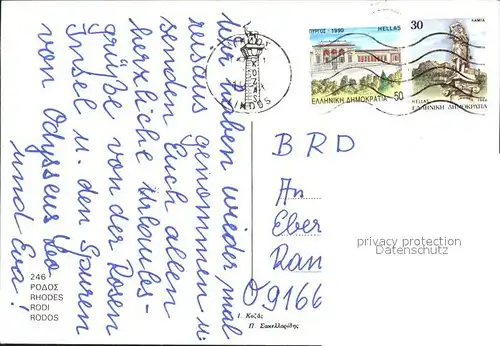 Wir haben wieder mal
reisaus genommen u.
senden Euch allen
herzliche Urlaubs-
grüße von der Rosen
Insel u. den Spuren
von Odysseus Leo
und Eva!
246
ΡΟΔΟΣ
RHODES
RODI
RODOS
ΠΥΡΓΟΣ · 1990 HELLAS
ΕΛΛΗΝΙΚΗ ΔΗΜΟΚΡΑΤΙΑ 50
30 ΛΑΜΙΑ
HELLAS
ΕΛΛΗΝΙΚΗ ΔΗΜΟΚΡΑΤΙΑ
BRD
An
Eber
Ran
O9166
privacy protection
Datenschutz
Ι. Κοζάς
Π. Σακελλαρίδης